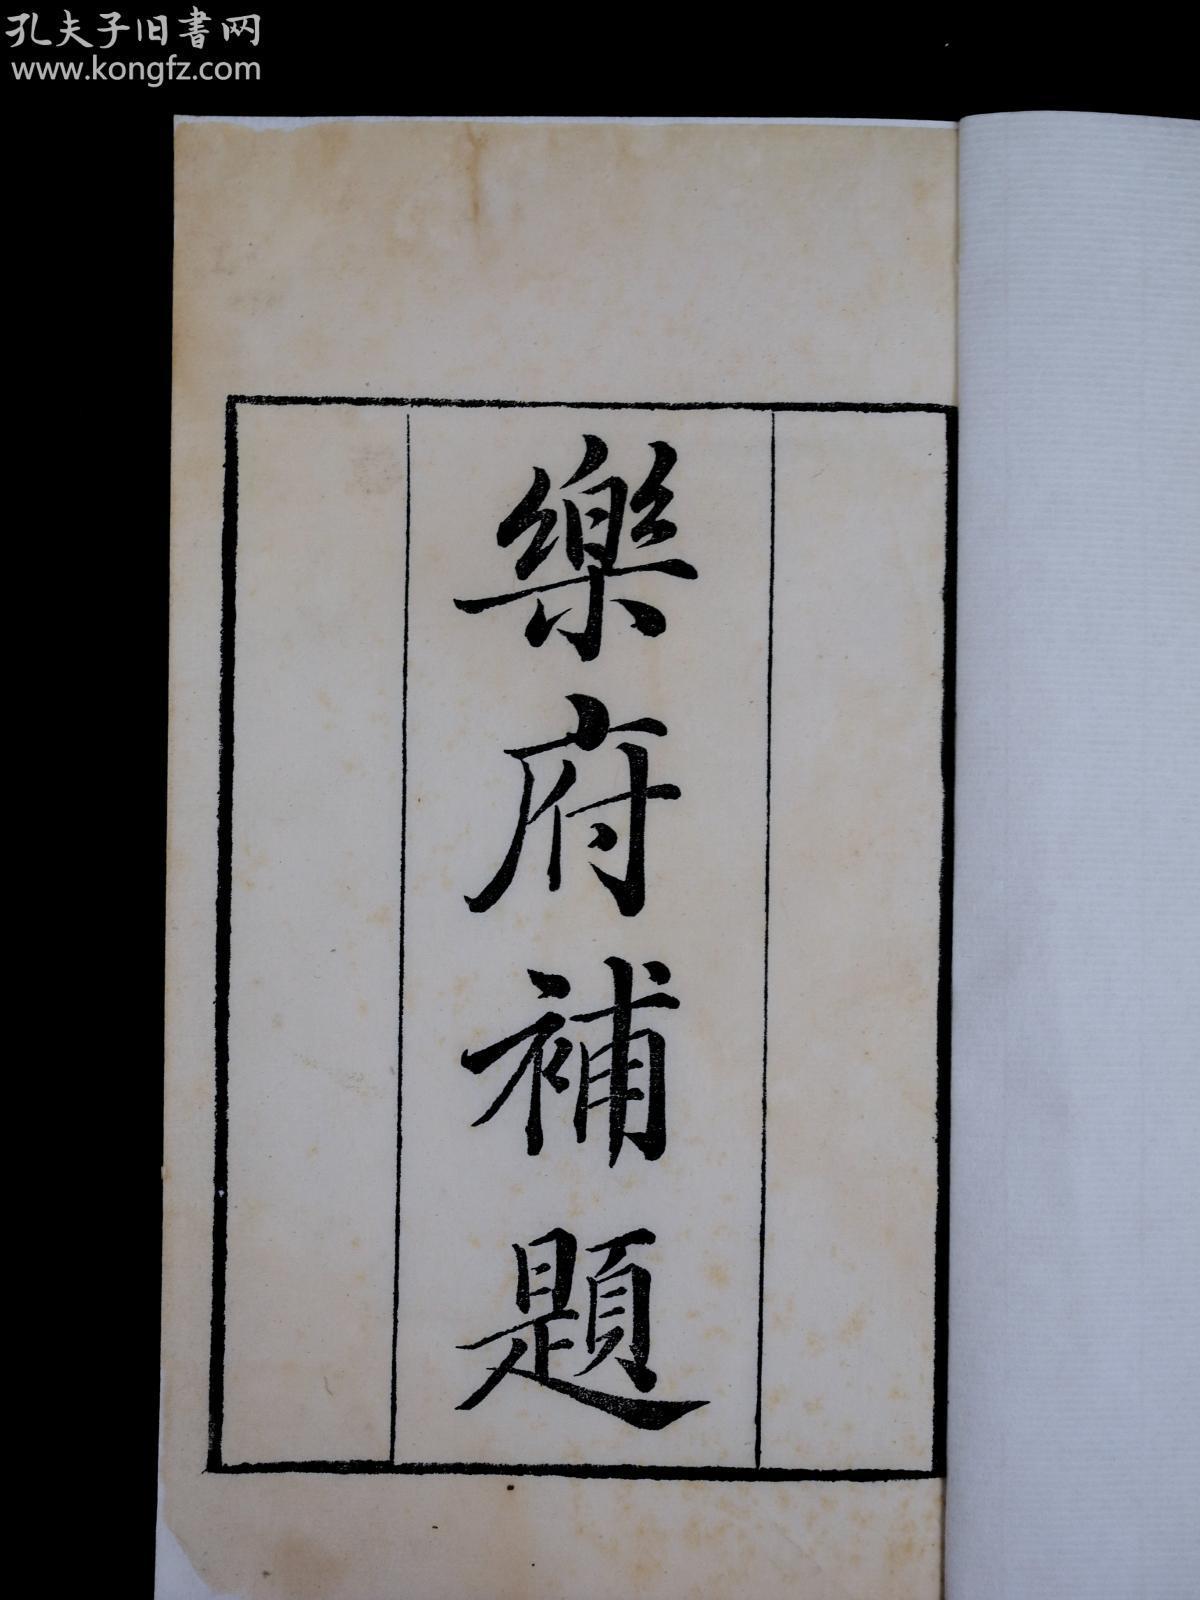 孔夫子旧書网
www.kongfz.com
樂府補題